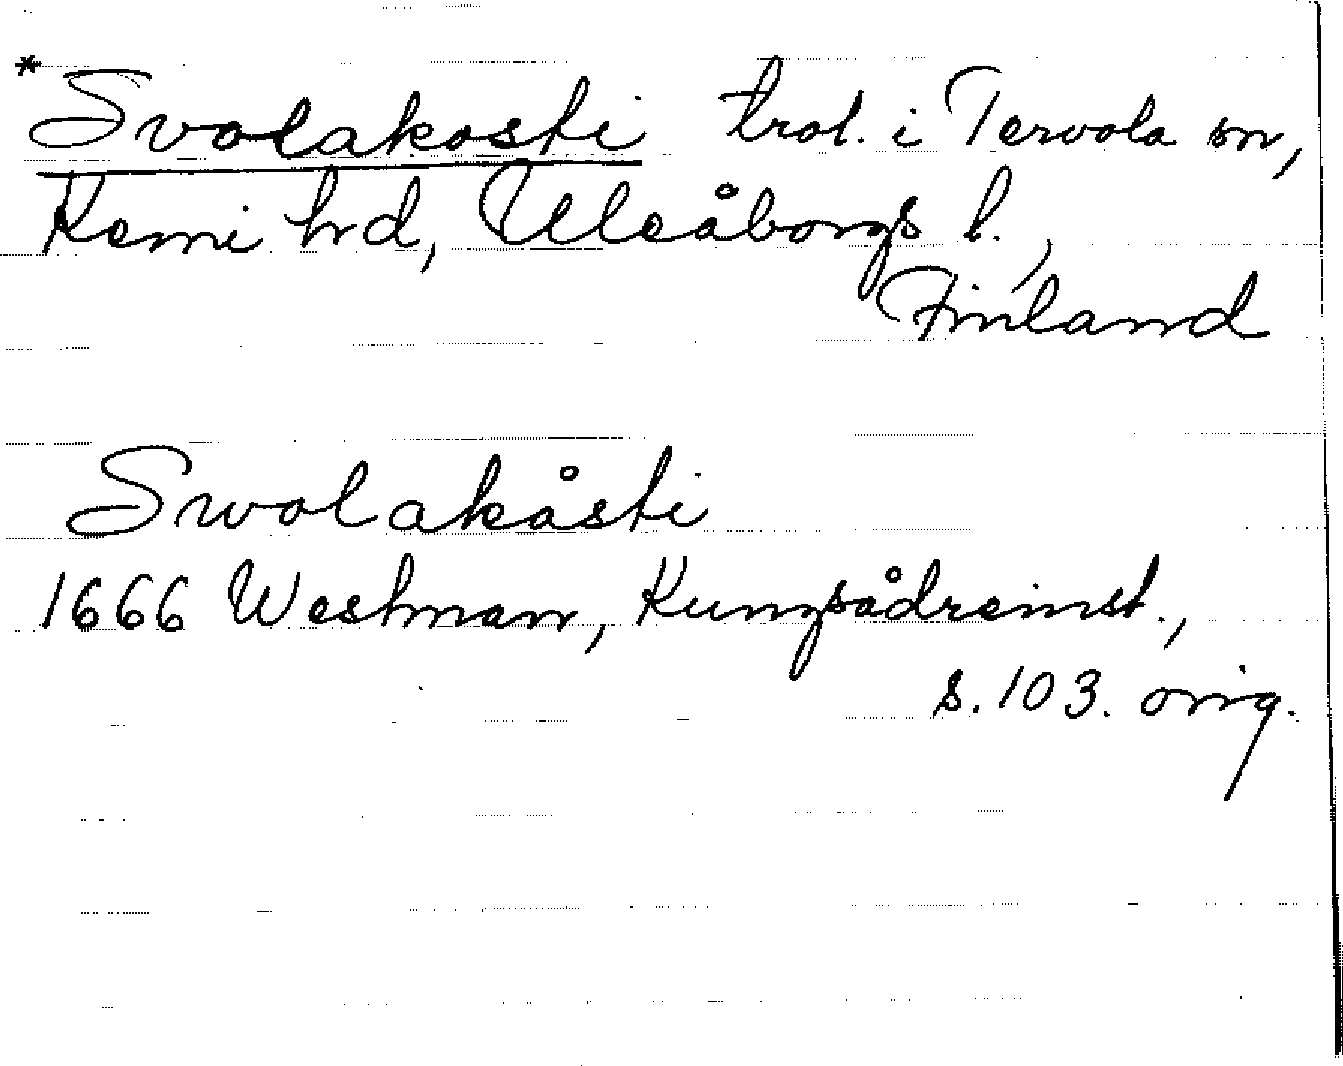 * Svolakosti trol. i Tervola sn,
Kemi hd, Uleåborgs l.,
Finland
Swolakåsti
1666 Westman, Kungsådreinst.,
s. 103. orig.